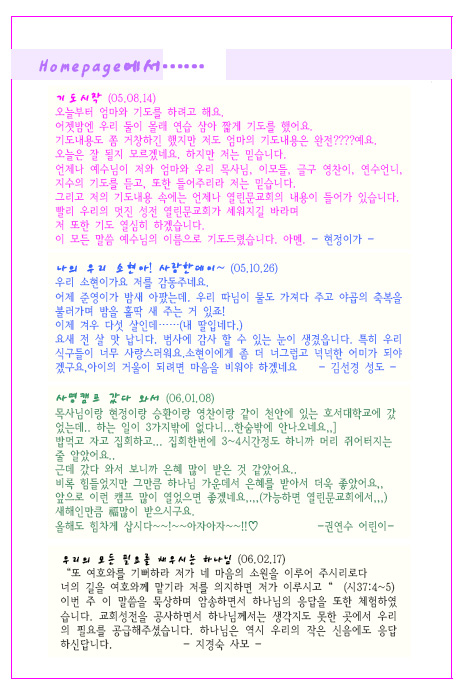 Homepage에서······
기도시작 (05.08.14)
오늘부터 엄마와 기도를 하려고 해요.
어젯밤엔 우리 둘이 몰래 연습 삼아 짧게 기도를 했어요.
기도내용도 쫌 거창하긴 했지만 저도 엄마의 기도내용은 완전????예요.
오늘은 잘 될지 모르겠네요. 하지만 저는 믿습니다.
언제나 예수님이 저와 엄마와 우리 목사님, 이모들, 글구 영찬이, 연수언니,
지수의 기도를 듣고, 또한 들어주리라 저는 믿습니다.
그리고 저의 기도내용 속에는 언제나 열린문교회의 내용이 들어가 있습니다.
빨리 우리의 멋진 성전 열린문교회가 세워지길 바라며
저 또한 기도 열심히 하겠습니다.
이 모든 말씀 예수님의 이름으로 기도드렸습니다. 아멘. - 현정이가 -
나의 우리 소현아! 사랑한데이~ (05.10.26)
우리 소현이가요 저를 감동주네요.
어제 준영이가 밤새 아팠는데. 우리 따님이 물도 가져다 주고 야곱의 축복을
불러가며 밤을 홀딱 새 주는 거 있죠!
이제 겨우 다섯 살인데······(내 딸입네다.)
요새 전 살 맛 납니다. 범사에 감사 할 수 있는 눈이 생겼읍니다. 특히 우리
식구들이 너무 사랑스러워요.소현이에게 좀 더 너그럽고 넉넉한 어미가 되야
겠구요,아이의 거울이 되려면 마음을 비워야 하겠네요 - 김선경 성도 -
사명캠프 갔다 와서 (06.01.08)
목사님이랑 현정이랑 승환이랑 영찬이랑 같이 천안에 있는 호서대학교에 갔
었는데.. 하는 일이 3가지밖에 없다니...한숨밖에 안나오네요,,]
밥먹고 자고 집회하고... 집회한번에 3~4시간정도 하니까 머리 쥐어터지는
줄 알았어요..
근데 갔다 와서 보니까 은혜 많이 받은 것 같았어요..
비록 힘들었지만 그만큼 하나님 가운데서 은혜를 받아서 더욱 좋았어요,,
앞으로 이런 캠프 많이 열었으면 좋겠네요,.,,(가능하면 열린문교회에서,,,)
새해인만큼 福많이 받으시구요.
올해도 힘차게 삽시다~~!~~아자아자~~!!♡ -권연수 어린이-
우리의 모든 필요를 채우시는 하나님 (06.02.17)
"또 여호와를 기뻐하라 저가 네 마음의 소원을 이루어 주시리로다
너의 길을 여호와께 맡기라 저를 의지하면 저가 이루시고 " (시37:4~5)
이번 주 이 말씀을 묵상하며 암송하면서 하나님의 응답을 또한 체험하였
습니다. 교회성전을 공사하면서 하나님께서는 생각지도 못한 곳에서 우리
의 필요를 공급해주셨습니다. 하나님은 역시 우리의 작은 신음에도 응답
하신답니다. - 지경숙 사모 -